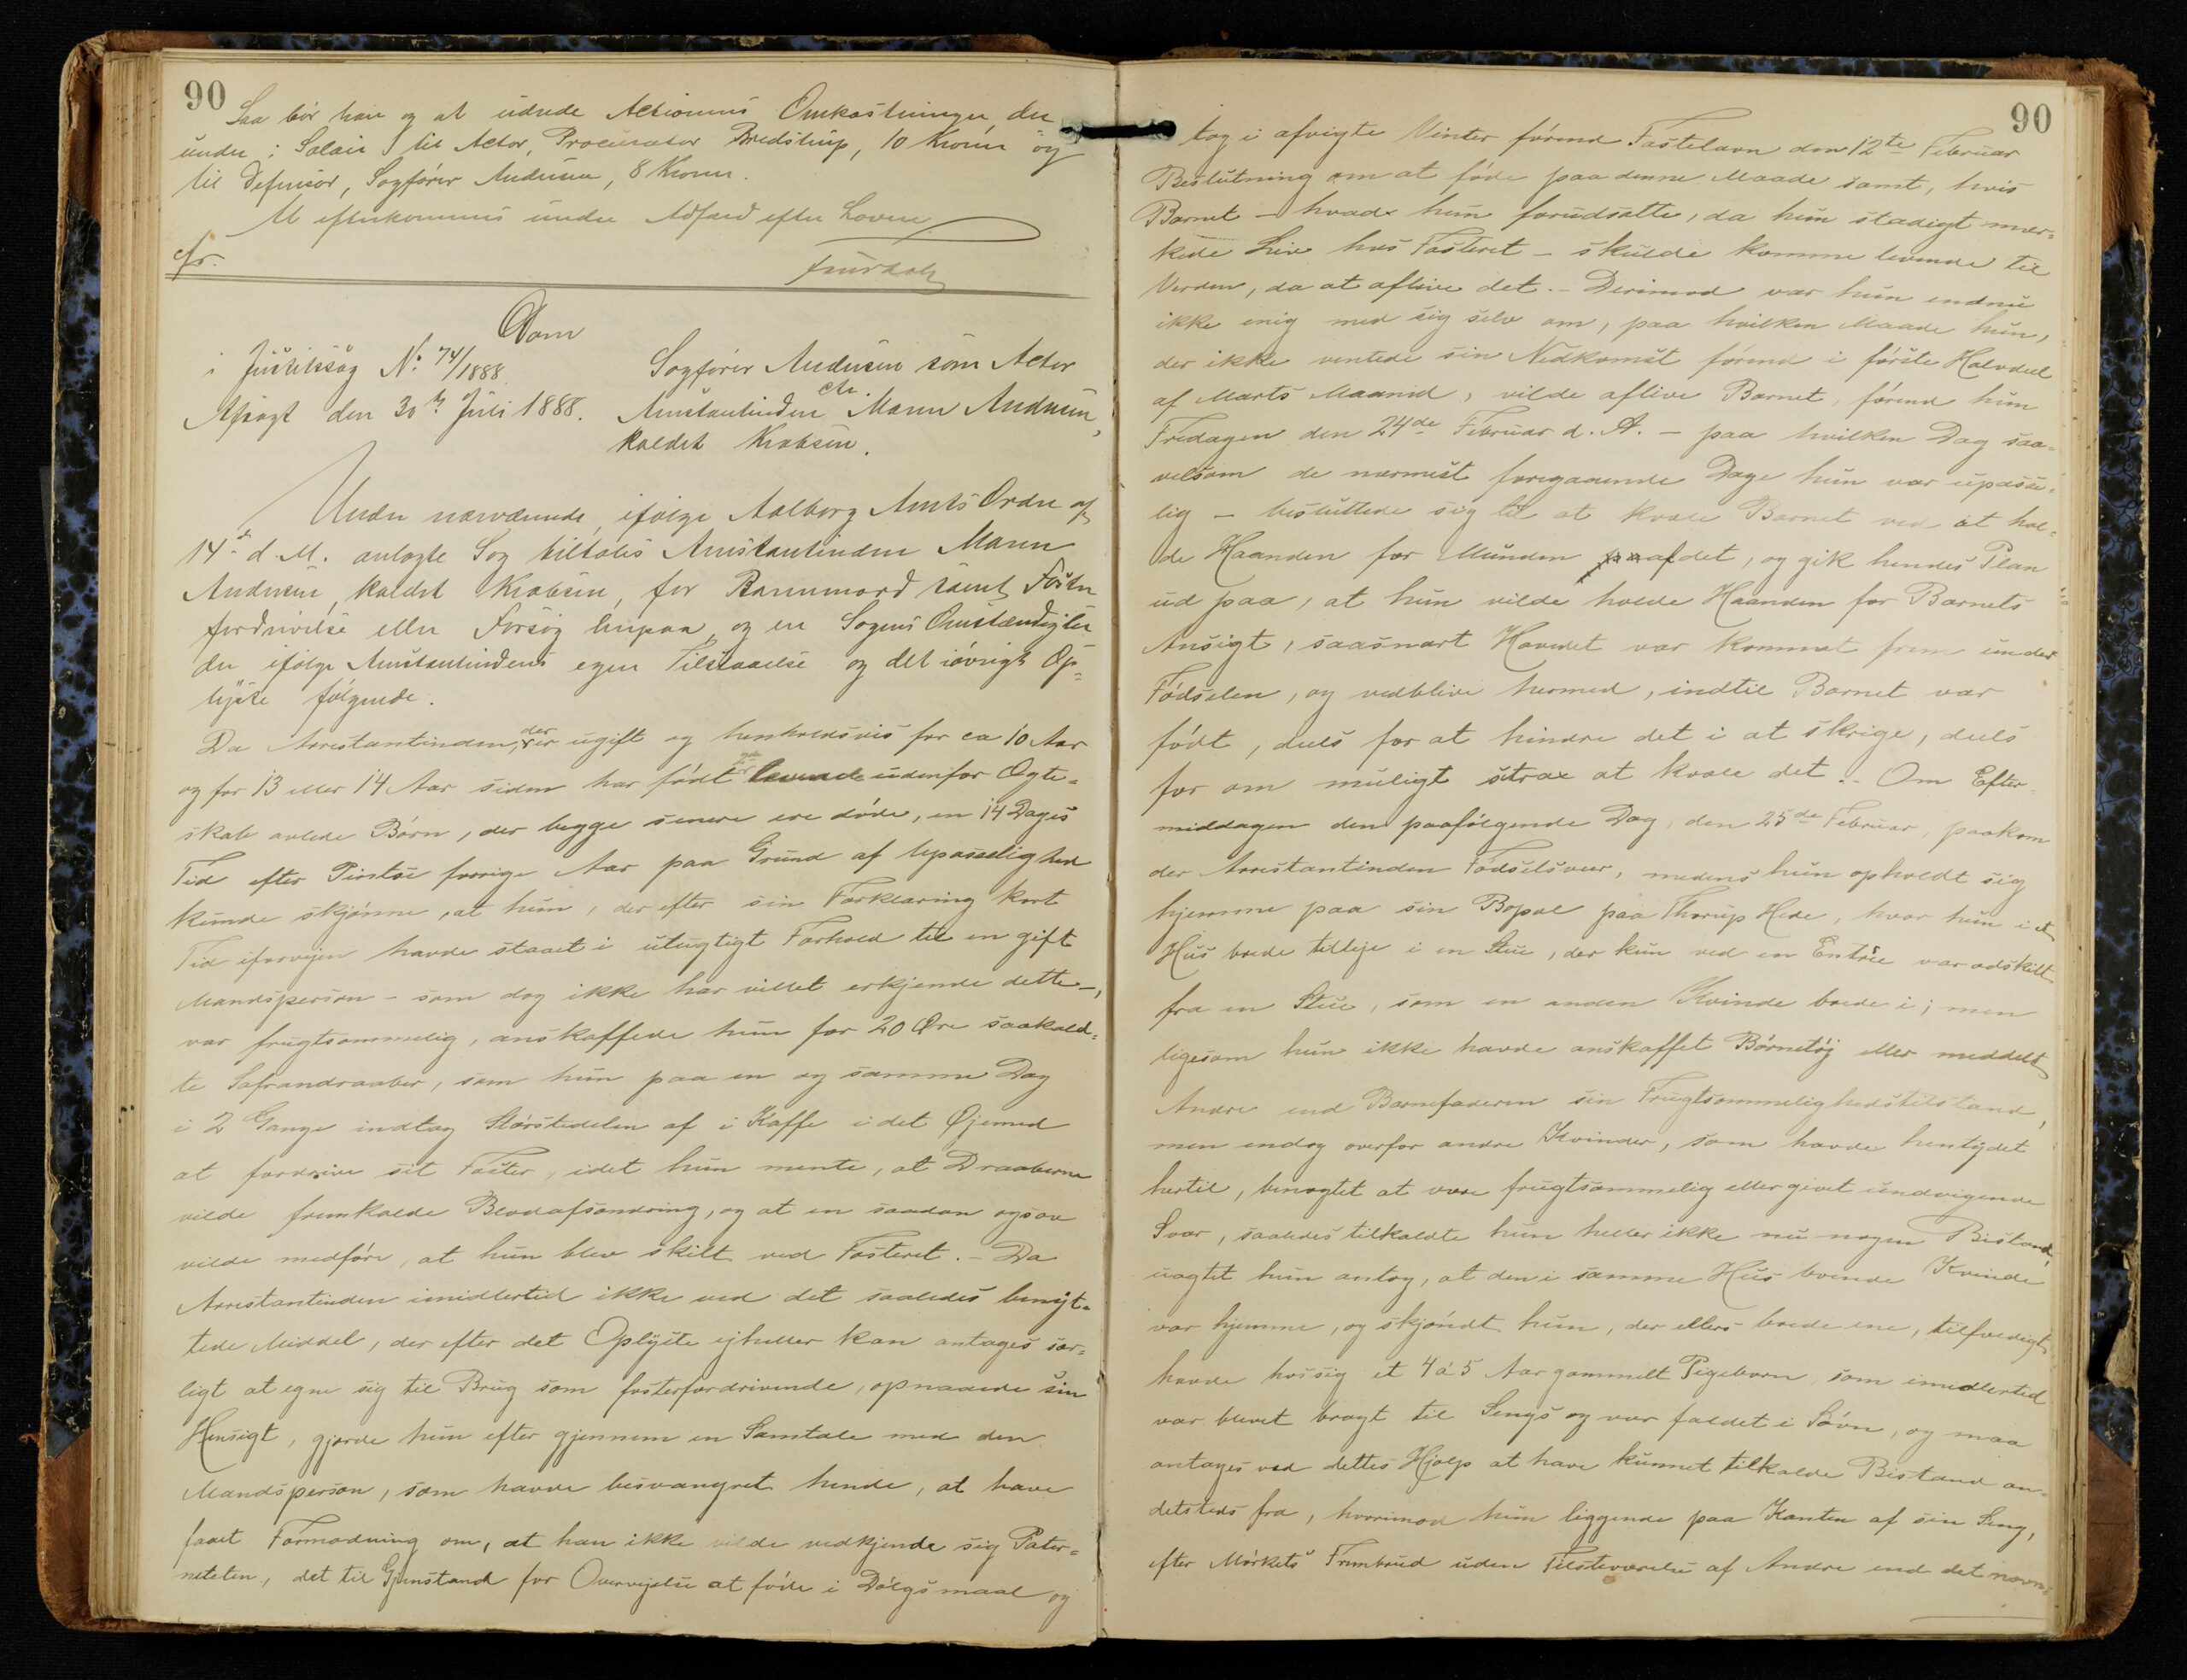 90
Saa bør han og at udrede Actionens Omkostninger, der
under i Salair til Actor, Procurator Bredstrup, 10 Kroner og
til Defensor, Sagfører Andersen, 8 Kroner.
At efterkommes under Adfærd efter Loven

Dom
i Justitssag No. 74/1888.
Afsagt den 30te Juli 1888.
Sagfører Andersen som Actor
ctr.
Arrestantinden Maren Andersen,
kaldet Krabsen.
Under nærværende, ifølge Aalborg Amts Ordre af
14de d. M. anlagte Sag tiltales Arrestantinden Maren
Andersen, kaldet Krabsen, for Barnemord samt Foster
fordrivelse eller Forsøg herpaa, og ere Sagens Omstændigheder
ifølge Arrestantindens egen Tilstaaelse og det iøvrigt Op-
lyste følgende.
Da Arrestantinden, der er ugift og henholdsvis for ca 10 Aar
og for 13 eller 14 Aar siden har født udenfor Ægte-
skab avlede Børn, der begge senere ere døde, en 14 Dages
Tid efter Pintse forrige Aar paa Grund af Upasselighed
kunde skjønne, at hun, der efter sin Forklaring kort
Tid iforvejen havde staaet i utugtigt Forhold til en gift
Mandsperson - som dog ikke har villet erkjende dette -,
var frugtsommelig, anskaffede hun for 20 Øre saakald-
te Safrandraaber, som hun paa en og samme Dag
i 2 Gange indtog Størstedelen af i Kaffe i det Øjemed
at fordrive sit Foster, idet hun mente, at Draaberne
vilde fremkalde Blodafsondring, og at en saadan ogsaa
vilde medføre, at hun blev skilt ved Fosteret. - Da
Arrestantinden imidlertid ikke ved det saaledes benyt-
tede Middel, der efter det Oplyste ejheller kan antages sær-
ligt at egne sig til Brug som fosterfordrivende, opnaaede sin
Hensigt, gjorde hun efter gjennem en Samtale med den
Mandsperson, som havde besvangret hende, at have
faaet Formodning om, at han ikke vilde vedkjende sig Pater-
niteten, det til Gjenstand for Overvejelse at føde i Dølgsmaal og
90
tog i afvigte Vinter førend Fastelavn den 12te Februar
Beslutning om at føde paa denne Maade samt, hvis
Barnet - hvad hun forudsatte, da hun stadigt mær-
kede Liv hos Fosteret - skulde komme levende til
Verden, da at aflive det. - Derimod var hun endnu
ikke enig med sig selv om, paa hvilken Maade hun,
der ikke ventede sin Nedkomst førend i første Halvdel
af Marts Maaned, vilde aflive Barnet, førend hun
Fredagen den 24de Februar d. A. - paa hvilken Dag saa-
velsom de nærmest foregaaende Dage hun var upasse-
lig - besluttede sig til at kvæle Barnet ved at hol-
de Haanden for Munden af det, og gik hendes Plan
ud paa, at hun vilde holde Haanden for Barnets
Ansigt, saasnart Hovedet var kommet frem under
Fødselen, og vedblive hermed, indtil Barnet var
født, deels for at hindre det i at skrige, deels
for om muligt strax at kvæle det. - Om Efter-
middagen den paafølgende Dag, den 25de Februar, paakom
der Arrestantinden Fødselsveer, medens hun opholdt sig
hjemme paa sin Bopæl paa Thorup Hede, hvor hun i et
Hus boede tilleje i en Stue, der kun ved en Entrée var adskilt
fra en Stue, som en anden Kvinde boede i; men
ligesom hun ikke havde anskaffet Børnetøj eller meddelt
Andre end Barnefaderen sin Frugtsommelighedstilstand,
men endog overfor andre Kvinder, som havde hentydet
hertil, benægtet at være frugtsommelig eller givet undvigende
Svar, saaledes tilkaldte hun heller ikke nu nogen Bistand,
uagtet hun antog, at den i samme Hus boende Kvinde
var hjemme, og skjøndt hun, der ellers boede ene, tilfældigt
havde hos sig et 4 á 5 Aar gammelt Pigebarn, som imidlertid
var blevet bragt til Sengs og var faldet i Søvn, og maa
antages ved dettes Hjælp at have kunnet tilkalde Bistand an-
detsteds fra, hvorimod hun liggende paa Kanten af sin Seng,
efter Mørkets Frembrud uden Tilstedeværelse af Andre end det nævn-